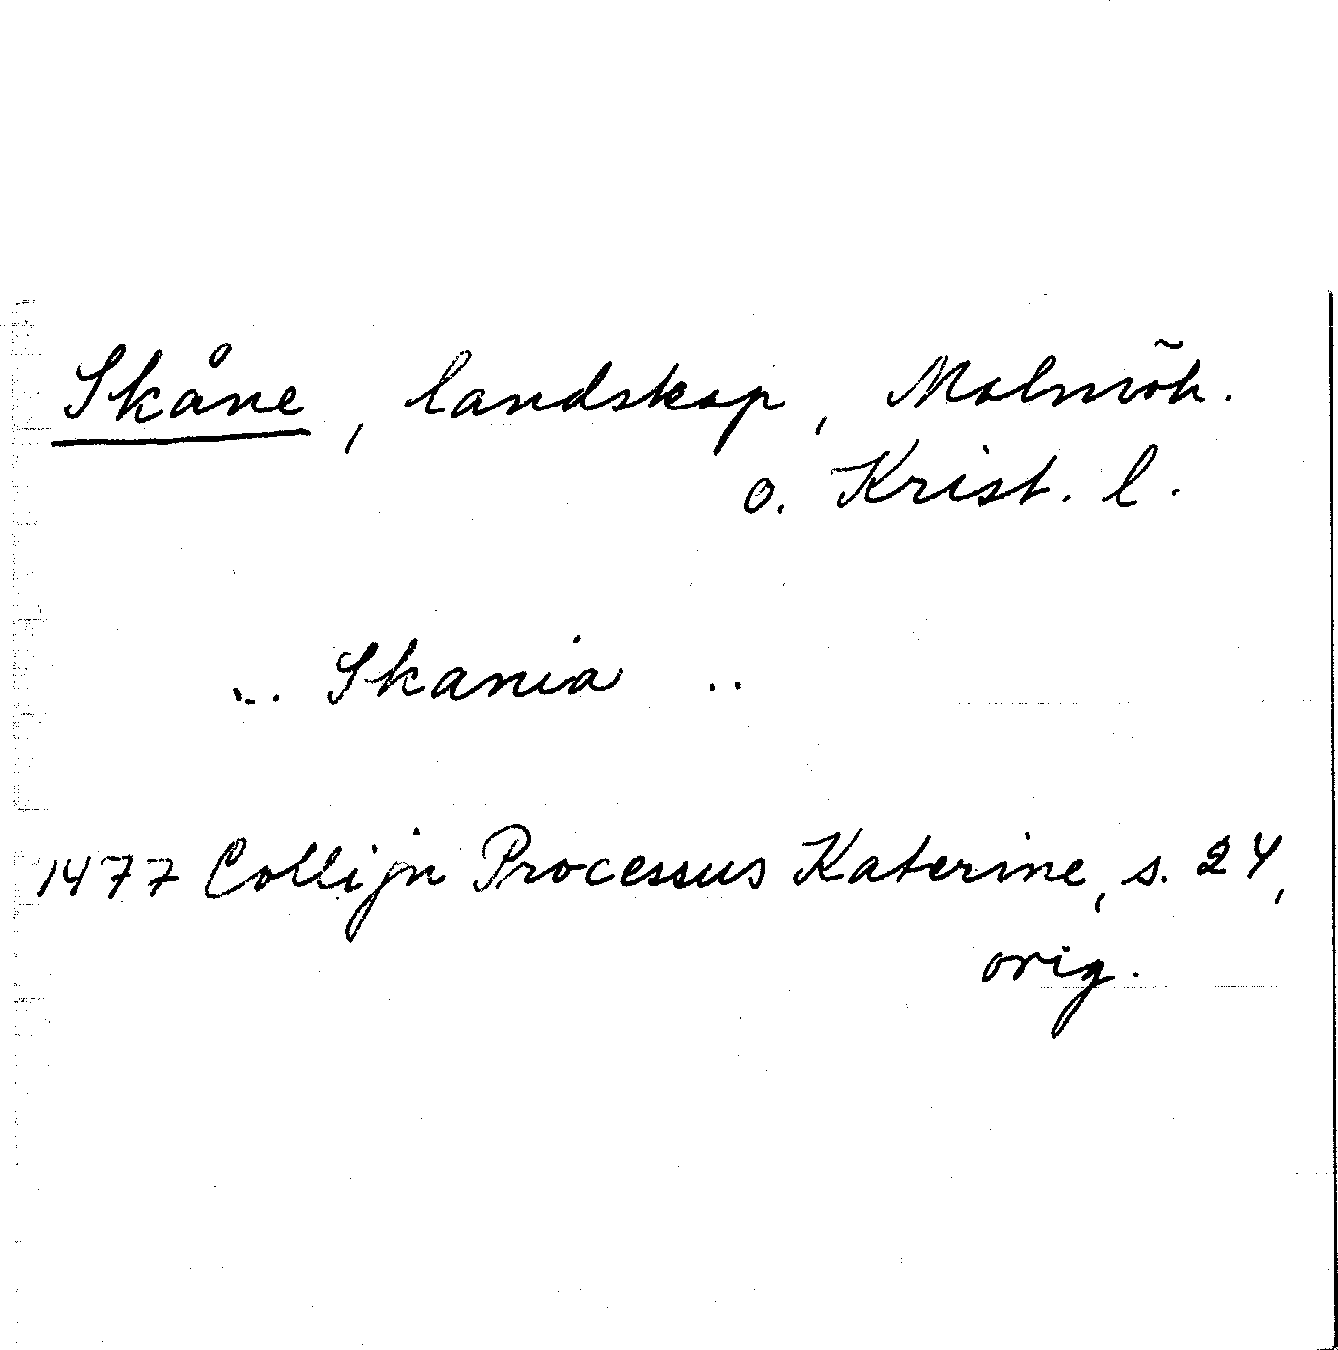 Skåne, landskap, Malmöh.
o. Krist. l.
... Skania ..
1477 Collijn Processus Katerine, s. 24,
orig.